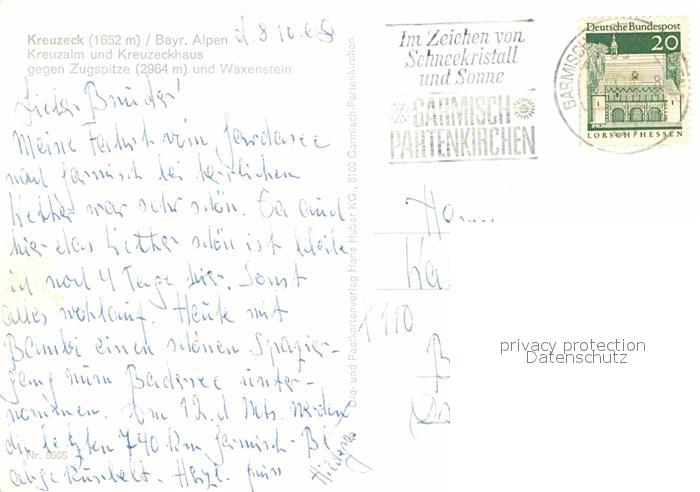 Kreuzeck (1652 m) / Bayr. Alpen
Kreuzalm und Kreuzeckhaus
gegen Zugspitze (2964 m) und Waxenstein
d. 8.10.69
Lieber Bruder!
Meine Fahrt vom Gardasee
nach Garmisch bei herrlichen
Wetter war sehr schön. Da auch
hier das Wetter schön ist bleibe
ich noch 4 Tage hier. Sonst
alles wohlauf. Heute mit
Bambi einen schönen Spazier-
gang zum Badersee unter-
nommen. Am 12. d. Mts. werden
die letzten 740 km Garmisch - Bl
abgekurbelt. Herzl. Hildegard
Nr. 8605
Dia- und Postkartenverlag Hans Huber KG., 8100 Garmisch-Partenkirchen
Im Zeichen von
Schneekristall
und Sonne
GARMISCH
PARTENKIRCHEN
GARMISCH
Deutsche Bundespost
20
LORSCH/HESSEN
privacy protection
Datenschutz